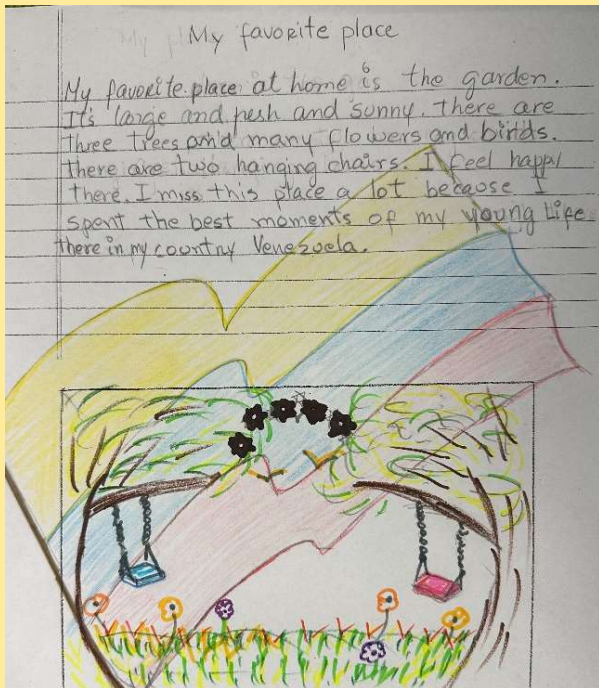 My favorite place
My favorite place at home is the garden.
It's large and fresh and sunny. There are
three trees and many flowers and birds.
there are two hanging chairs. I feel happy
there. I miss this place a lot because I
spent the best moments of my young Life
there in my country Venezuela.